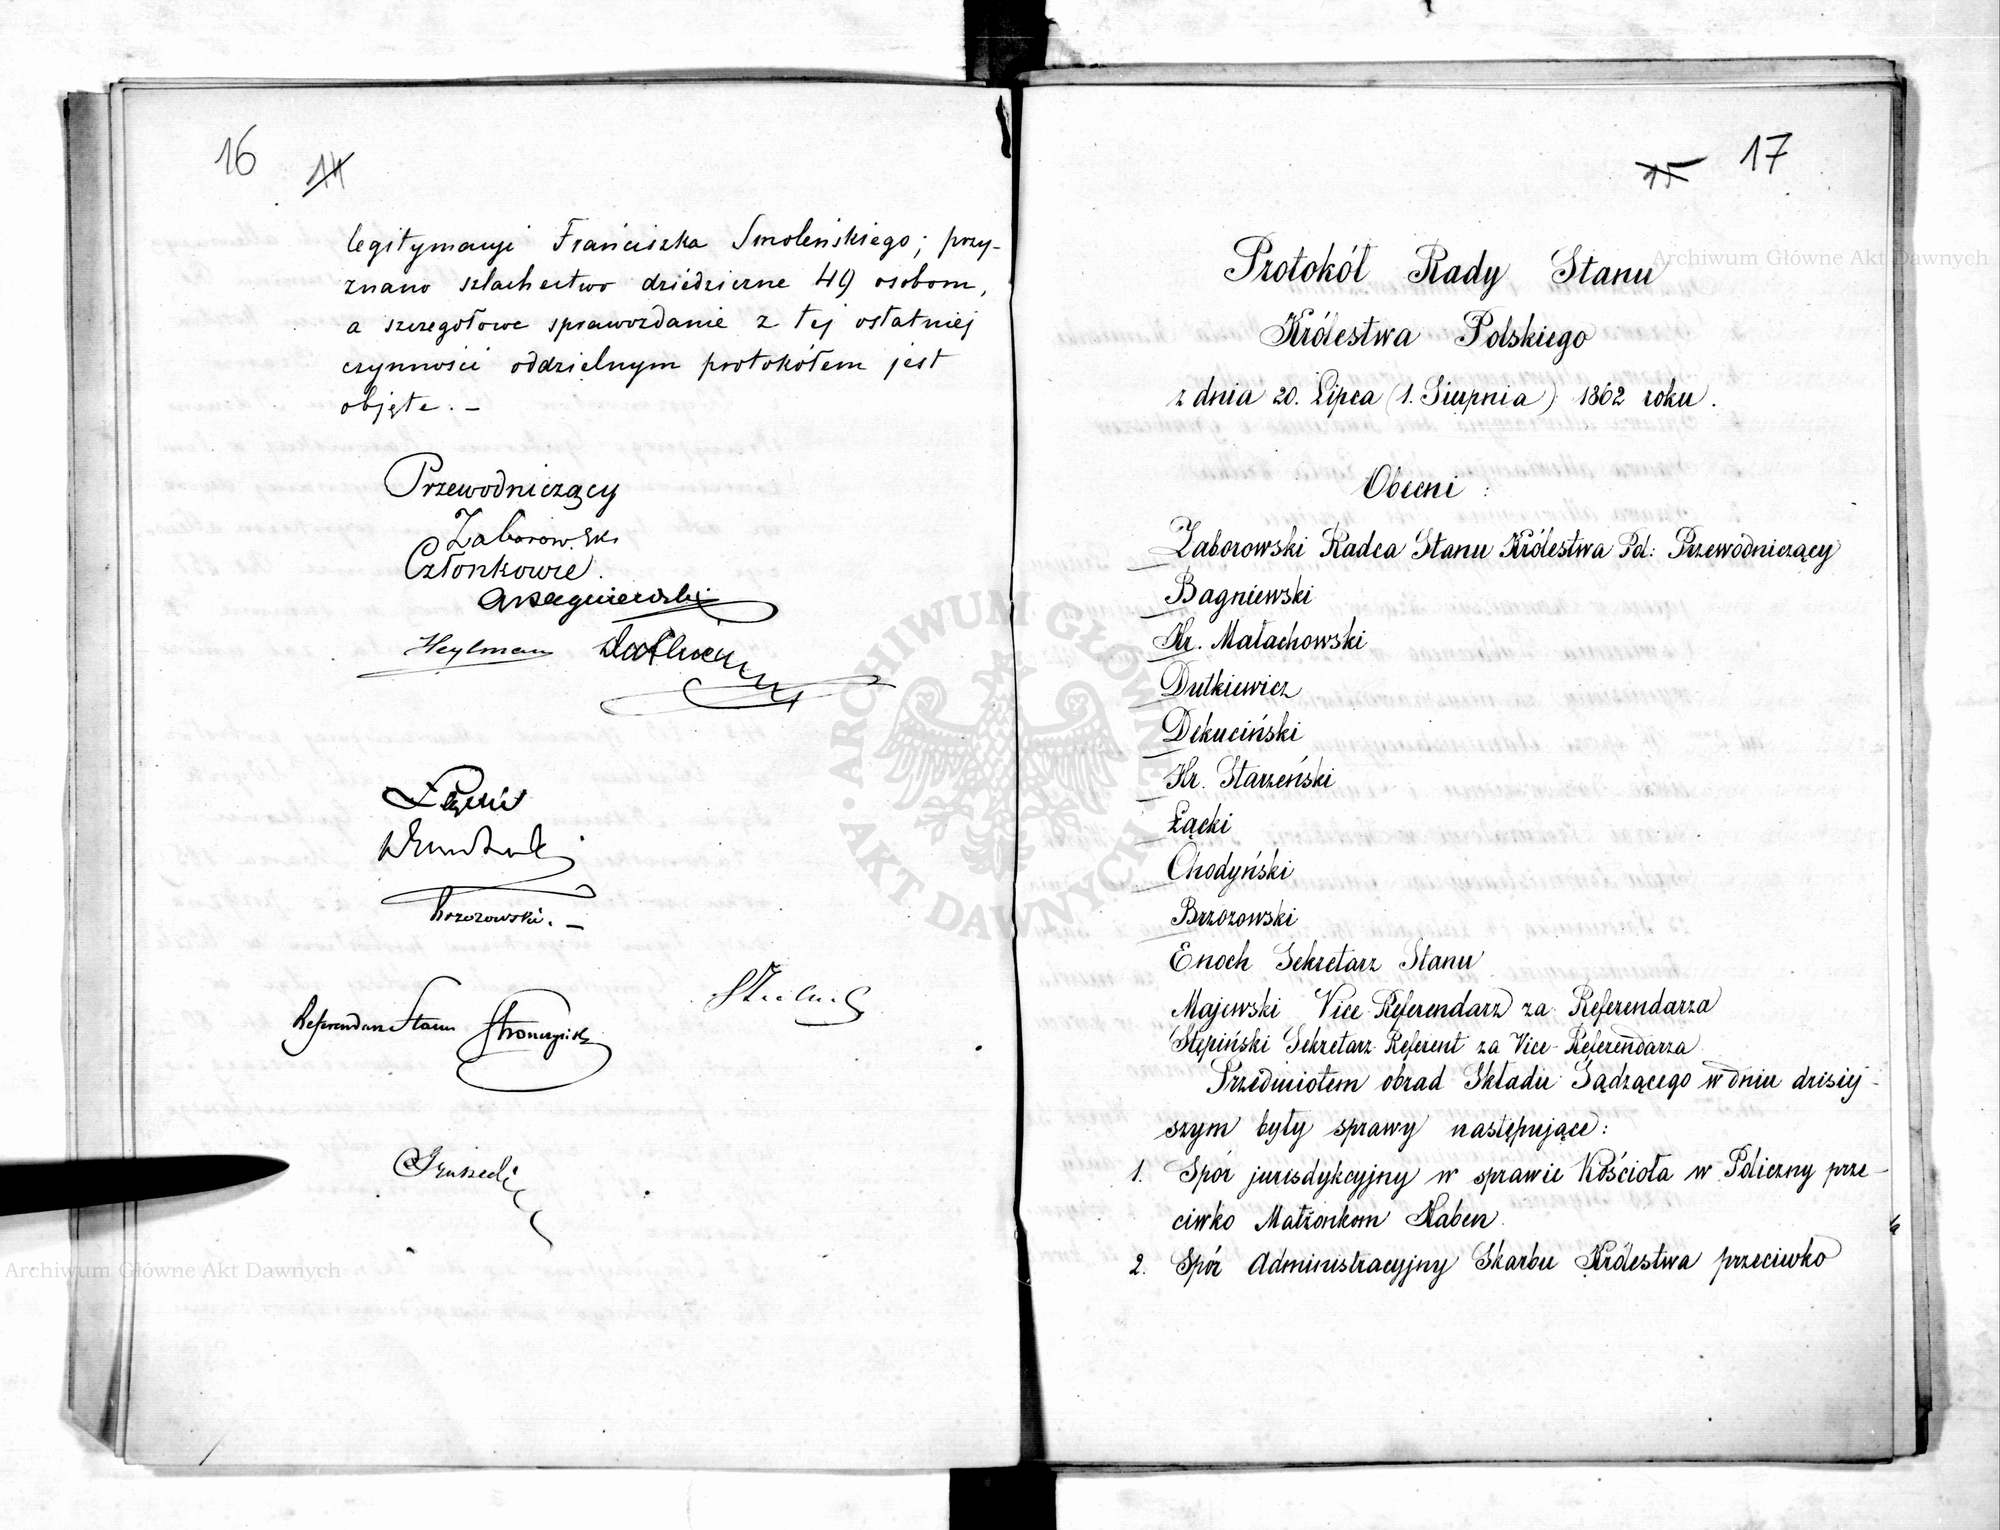 16
14
legitymacyi Franciszka Smoleńskiego; przy-
znano szlachectwo dziedziczne 49 osobom,
a szczegółowe sprawozdanie z tej ostatniej
czynności oddzielnym protokółem jest
objęte. –
Przewodniczący
Zaborowski
Członkowie.
Heylman
Brzozowski. –
Referendarz Stanu Stronczyński
17
15
Protokół Rady Stanu
Królestwa Polskiego
z dnia 20. Lipca (1. Sierpnia) 1862 roku.
Obecni:
Zaborowski Radca Stanu Królestwa Pol: Przewodniczący
Bagniewski
Hr. Małachowski
Dutkiewicz
Dekuciński
Hr. Starzeński
Łącki
Chodyński
Brzozowski
Enoch Sekretarz Stanu
Majewski Vice Referendarz za Referendarza
Stępiński Sekretarz Referent za Vice-Referendarza
Przedmiotem obrad Składu Sądzącego w dniu dzisiej-
szym były sprawy następujące:
1. Spór jurisdykcyjny w sprawie Kościoła w Policzny prze-
ciwko Małżonkom Haben.
2. Spór Administracyjny Skarbu Królestwa przeciwko
Archiwum Główne Akt Dawnych
Archiwum Główne Akt Dawnych
ARCHIWUM GŁÓWNE AKT DAWNYCH